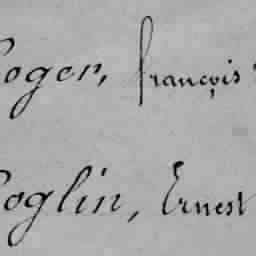 oger, François
oglin, Ernest